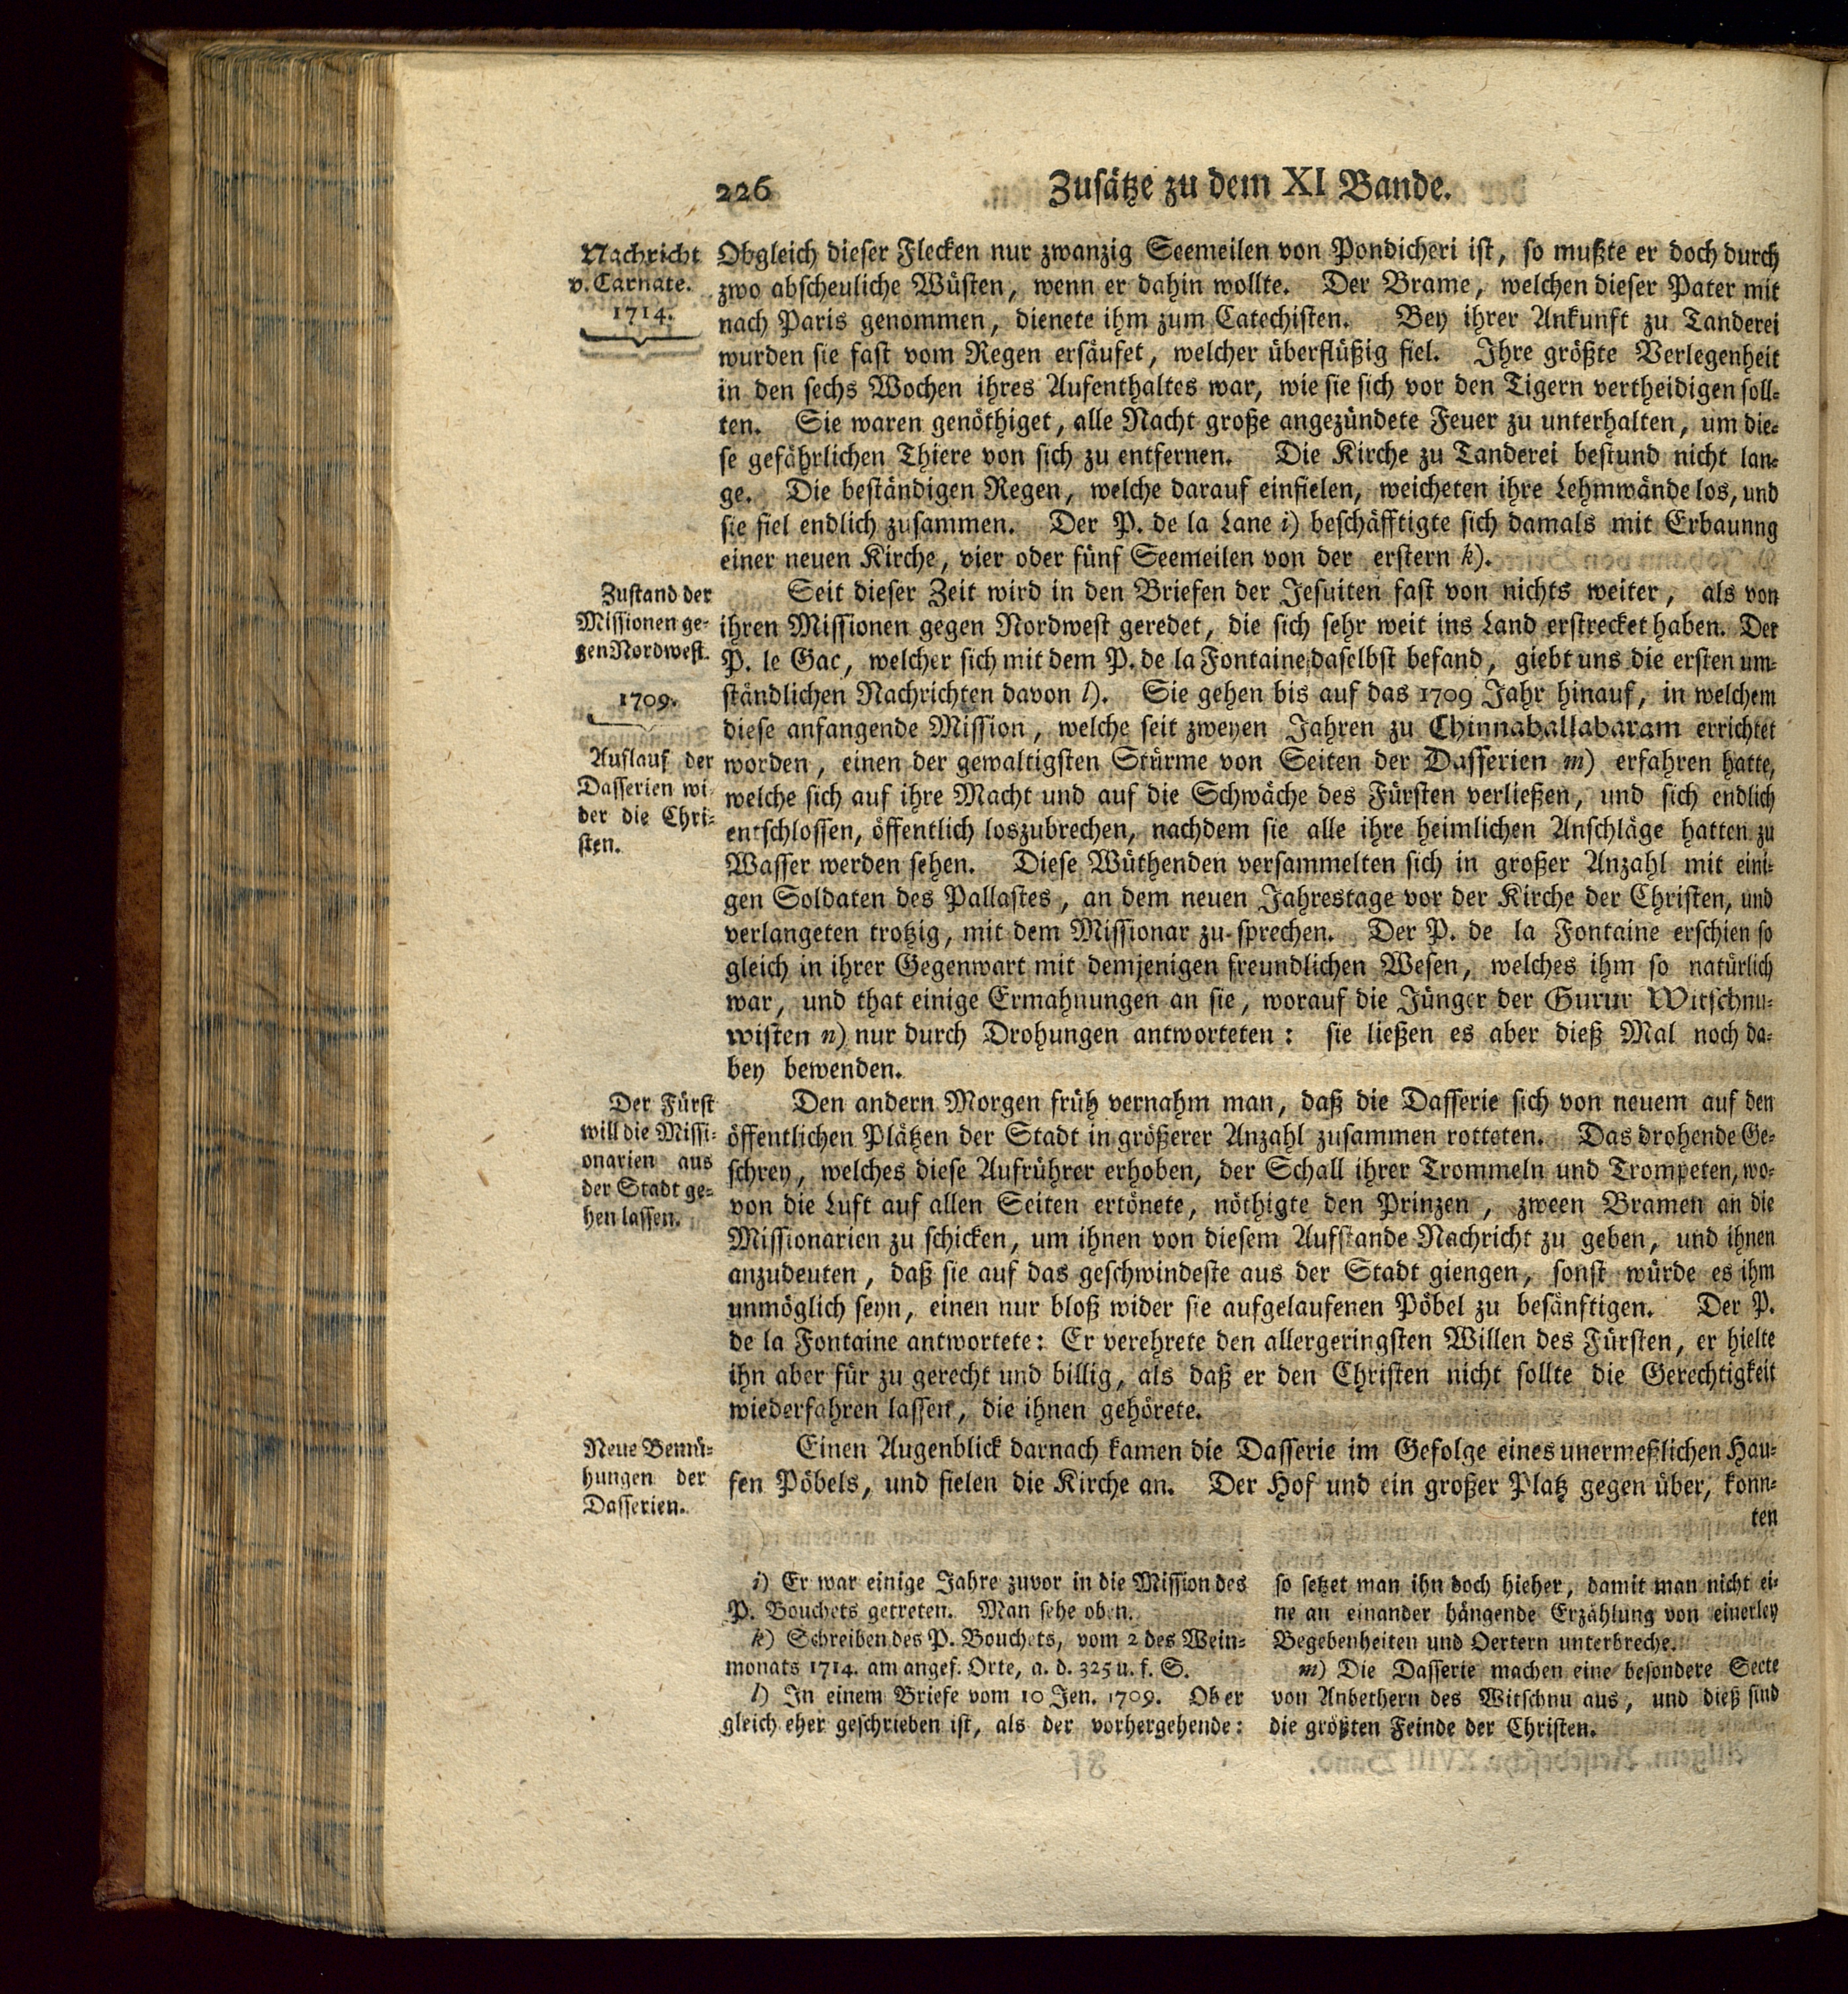 226
Zusätze zu dem XI Bande.
Nachricht
v. Carnate.
1714.
Obgleich dieser Flecken nur zwanzig Seemeilen von Pondicheri ist, so mußte er doch durch
zwo abscheuliche Wüsten, wenn er dahin wollte. Der Brame, welchen dieser Pater mit
nach Paris genommen, dienete ihm zum Catechisten. Bey ihrer Ankunft zu Tanderei
wurden sie fast vom Regen ersäufet, welcher überflüßig fiel. Ihre größte Verlegenheit
in den sechs Wochen ihres Aufenthaltes war, wie sie sich vor den Tigern vertheidigen soll-
ten. Sie waren genöthiget, alle Nacht große angezündete Feuer zu unterhalten, um die-
se gefährlichen Thiere von sich zu entfernen. Die Kirche zu Tanderei bestund nicht lan-
ge. Die beständigen Regen, welche darauf einfielen, weicheten ihre Lehmwände los, und
sie fiel endlich zusammen. Der P. de la Lane i) beschäfftigte sich damals mit Erbaunng
einer neuen Kirche, vier oder fünf Seemeilen von der erstern k).
Zustand der
Missionen ge-
gen Nordwest.
1709.
Seit dieser Zeit wird in den Briefen der Jesuiten fast von nichts weiter, als von
ihren Missionen gegen Nordwest geredet, die sich sehr weit ins Land erstrecket haben. Der
P. le Gac, welcher sich mit dem P. de la Fontaine daselbst befand, giebt uns die ersten um-
ständlichen Nachrichten davon l). Sie gehen bis auf das 1709 Jahr hinauf, in welchem
diese anfangende Mission, welche seit zweyen Jahren zu Chinnaballabaram errichtet
Auflauf der
Dasserien wi-
der die Chri-
sten.
worden, einen der gewaltigsten Stürme von Seiten der Dasserien m) erfahren hatte,
welche sich auf ihre Macht und auf die Schwäche des Fürsten verließen, und sich endlich
entschlossen, öffentlich loszubrechen, nachdem sie alle ihre heimlichen Anschläge hatten zu
Wasser werden sehen. Diese Wüthenden versammelten sich in großer Anzahl mit eini-
gen Soldaten des Pallastes, an dem neuen Jahrestage vor der Kirche der Christen, und
verlangeten trotzig, mit dem Missionar zu sprechen. Der P. de la Fontaine erschien so
gleich in ihrer Gegenwart mit demjenigen freundlichen Wesen, welches ihm so natürlich
war, und that einige Ermahnungen an sie, worauf die Jünger der Gurur Witschnu-
wisten n) nur durch Drohungen antworteten: sie ließen es aber dieß Mal noch da-
bey bewenden.
Der Fürst
will die Missi-
onarien aus
der Stadt ge-
hen lassen.
Den andern Morgen früh vernahm man, daß die Dasserie sich von neuem auf den
öffentlichen Plätzen der Stadt in größerer Anzahl zusammen rotteten. Das drohende Ge-
schrey, welches diese Aufrührer erhoben, der Schall ihrer Trommeln und Trompeten, wo-
von die Luft auf allen Seiten ertönete, nöthigte den Prinzen, zween Bramen an die
Missionarien zu schicken, um ihnen von diesem Aufstande Nachricht zu geben, und ihnen
anzudeuten, daß sie auf das geschwindeste aus der Stadt giengen, sonst würde es ihm
unmöglich seyn, einen nur bloß wider sie aufgelaufenen Pöbel zu besänftigen. Der P.
de la Fontaine antwortete: Er verehrete den allergeringsten Willen des Fürsten, er hielte
ihn aber für zu gerecht und billig, als daß er den Christen nicht sollte die Gerechtigkeit
wiederfahren lassen, die ihnen gehörete.
Neue Bemü-
hungen der
Dasserien.
Einen Augenblick darnach kamen die Dasserie im Gefolge eines unermeßlichen Hau-
fen Pöbels, und fielen die Kirche an. Der Hof und ein großer Platz gegen über, konn-
ten
i) Er war einige Jahre zuvor in die Mission des
P. Bouchets getreten. Man sehe oben.
k) Schreiben des P. Bouchets, vom 2 des Wein-
monats 1714. am angef. Orte, a. d. 325 u. f. S.
l) In einem Briefe vom 10 Jen. 1709. Ob er
gleich eher geschrieben ist, als der vorhergehende:
so setzet man ihn doch hieher, damit man nicht ei-
ne an einander hängende Erzählung von einerley
Begebenheiten und Oertern unterbreche.
m) Die Dasserie machen eine besondere Secte
von Anbethern des Witschnu aus, und dieß sind
die größten Feinde der Christen.